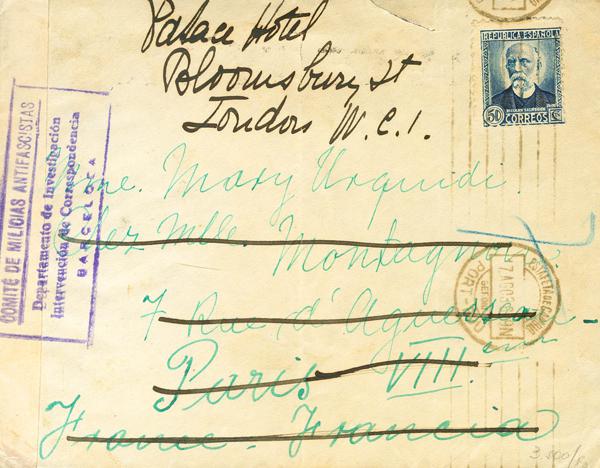 Palace Hotel
Bloomsbury St
London W.C.1.
REPUBLICA ESPAÑOLA
50 CORREOS
COMITÉ DE MILICIAS ANTIFASCISTAS
Departamento de Investigación
Intervención de Correspondencia
BARCELONA
Mme. Mary Urquidi.
Chez Mlle. Montagnon
7 Rue d'Aguesseau
Paris VIII
France - Francia
3.500/